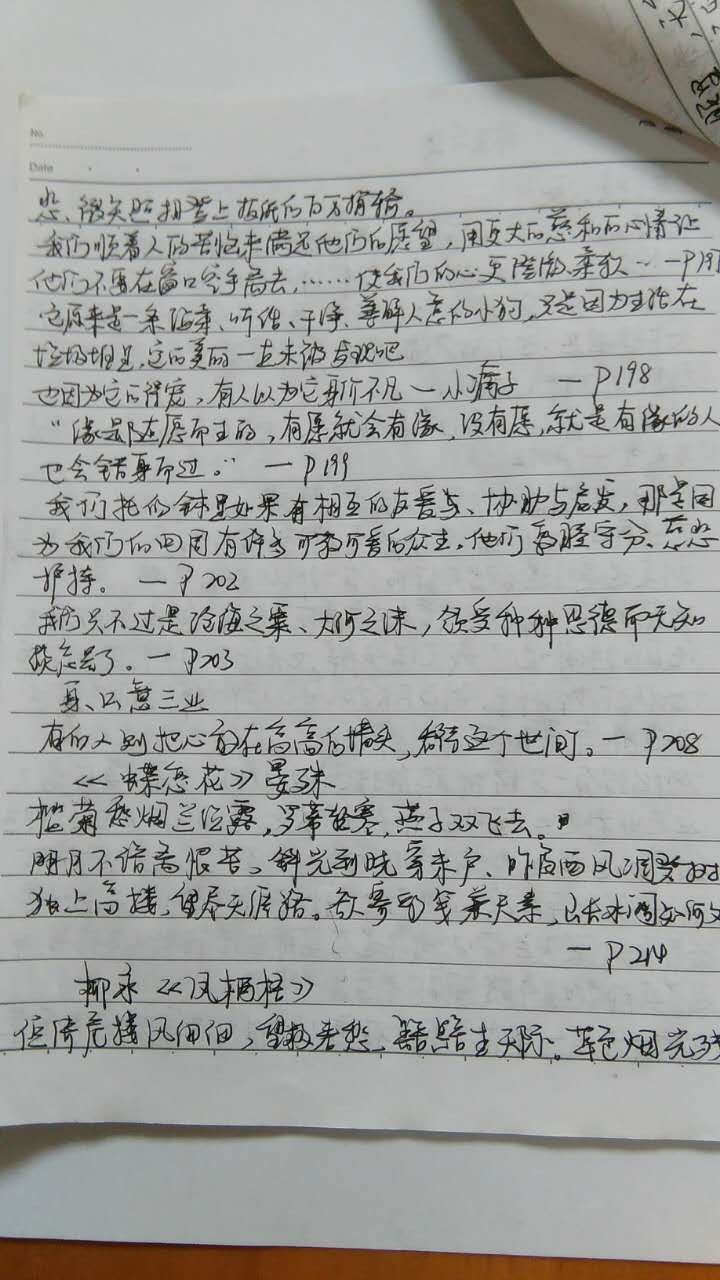 No.
Date
悲、微笑
我们顺着人的苦恼来满足他们的愿望，用更大的慈和的心情让
他们不要在窗口空手离去，……使我们的心更澄澈、柔软…—P197
它原来是一条温柔、听话、干净、善解人意的小狗，只是因为生活在
垃圾堆里，它的美丽一直未被发现吧
也因为它的得宠，有人以为它身价不凡—小癞子 —P198
“缘是随愿而生的，有愿就会有缘，没有愿，就是有缘的人
也会错身而过。”—P199
我们托的钵里如果有相互的友爱与、协助与启发，那是因
为我们的四周有许多可敬可爱的众生，他们 守分、慈悲
护持。—P202
我们只不过是沧海之粟、大河之沫，领受种种恩德而无知
P203
身、口、意三业
有的人则把心放在高高的墙头， 这个世间。—P208
《蝶恋花》晏殊
槛菊愁烟兰泣露，罗幕轻寒，燕子双飞去。
明月不谙离恨苦，斜光到晓穿朱户。昨夜西风凋碧树
独上高楼，望尽天涯路。欲寄彩笺兼尺素，
—P214
柳永《凤栖梧》
伫倚危楼风细细，望极春愁，黯黯生天际。草色烟光残